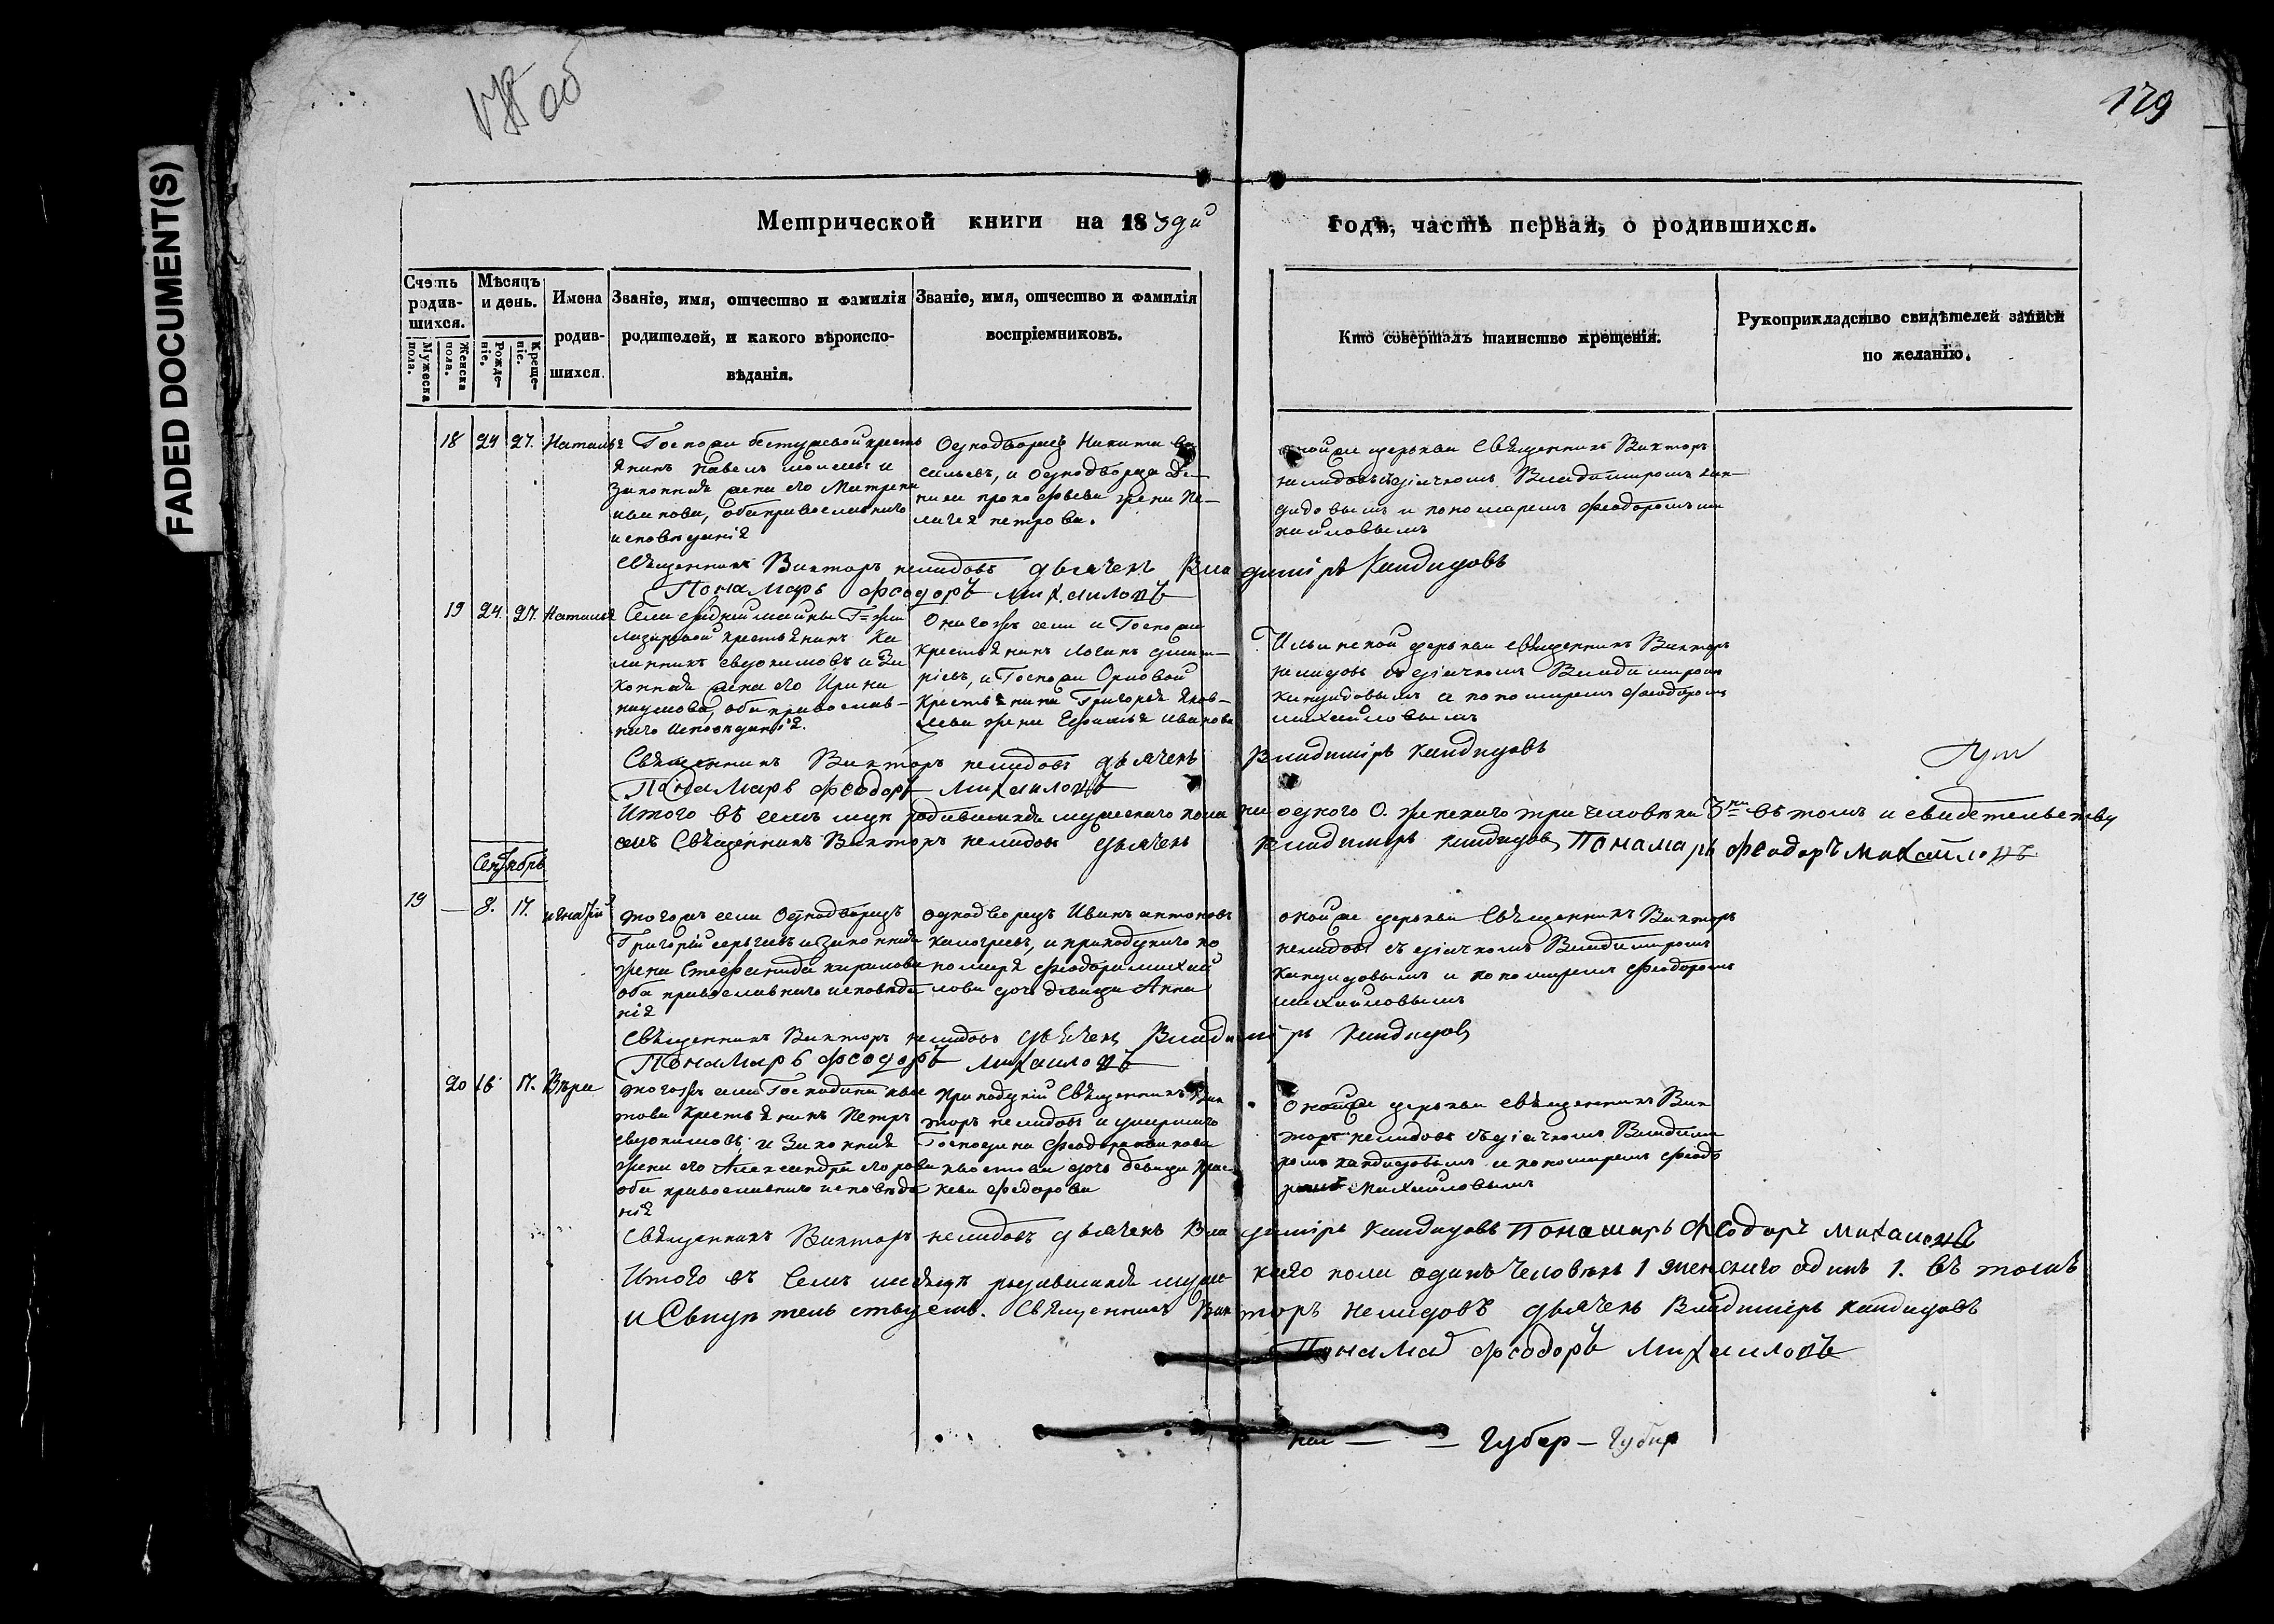 FADED DOCUMENT(S)
об
179
Метрической книги на 18
годъ, часть первая, о родившихся.
Счетъ родив-шихся.
Мужеска пола.
Женска пола.
Мѣсяцъ и день.
Рожде-ніе.
Креще-ніе.
Имена родив-шихся.
Званіе, имя, отчество и фамилія родителей, и какого вѣроиспо-вѣданія.
Званіе, имя, отчество и фамилія воспріемниковъ.
Кто совершалъ таинство крещенія.
Рукоприкладство свидѣтелей записи по желанію.
18 24 27. Наталья
Госпожи Бестужевой кресть
янинъ Павелъ и
Законная жена его Матрена
иванова, оба православнаго
исповѣданія
Однодворецъ Никита Ва
сильевъ, и Однодворца Да
нила прокофьева жена Пе
лагея петрова.
оной же церкви Священникъ Викторъ
нелидовъ съ діячкомъ Владимиромъ кан
дидовымъ и пономаремъ Феодоромъ ми
хайловымъ
Священникъ Викторъ нелидовъ дьячекъ Владимиръ Кандидовъ
Понамарь Феодоръ Михаиловъ
19 24. 27. Наталья
Села средній майны Г=жи
крестьянинъ Ка
линникъ евдокимовъ и За
конная жена его Ирина
наумова, оба православ-
наго Исповѣданія.
Онагожъ села и Госпожи
Крестьянинъ Логинъ дмит-
ріевъ, и Госпожи Орловой
Крестьянина Григорья Яков-
лева жена Ефимья иванова
Ильинской церкви священникъ Викторъ
нелидовъ съ діячкомъ Владимиромъ
кандидовымъ и пономаремъ Феодоромъ
михайловымъ
Священникъ Викторъ нелидовъ дьячекъ Владимиръ Кандидовъ
Понамарь Феодоръ Михаиловъ
Итого въ семъ м-цѣ родившихся мужескаго пола ни одного 0. женскаго три человѣка 3 въ томъ и свидетельству
емъ Священникъ Викторъ нелидовъ дьячекъ Владимиръ Кандидовъ Понамарь Феодоръ Михайловъ
Сентябрь
19 — 8. 17. игнатій
тогожъ села Однодворецъ
Григорій сергѣевъ и законная
жена Стефанида
оба православнаго исповѣда
нія
однодворецъ Иванъ антоновъ
и приходскаго по
номаря Феодора михай
лова дочь девица Анна
оной же церкви Священникъ Викторъ
нелидовъ съ діячкомъ Владимиромъ
Кандидовымъ и пономаремъ Феодоромъ
михайловымъ
Священникъ Викторъ нелидовъ дьячекъ Владимиръ Кандидовъ
Понамарь Феодоръ Михаиловъ
20 16 17. Вѣра
тогожъ села Господина
крестьянинъ Петръ
евдокимовъ и Законная
жена его Александра егорова
оба православнаго исповѣда
нія
Приходскій Священникъ Вик
торъ нелидовъ и умершаго
Господина Феодора
дочь девица Прас
кева Федорова
оной же церкви священникъ Вик
торъ нелидовъ съ діячкомъ Владими
ромъ кандидовымъ и пономаремъ Феодо
ромъ Михайловымъ
Священникъ Викторъ нелидовъ дьячекъ Владимиръ Кандидовъ Понамарь Феодоръ Михаиловъ
Итого въ Семъ месяцѣ родившихся мужескаго пола одинъ человѣкъ 1 женскаго одинъ 1. въ томъ
и Свидѣтельствуемъ. Священникъ Викторъ Нелидовъ дьячекъ Владимиръ Кандидовъ
Феодоръ Михаиловъ
Губер — Губер